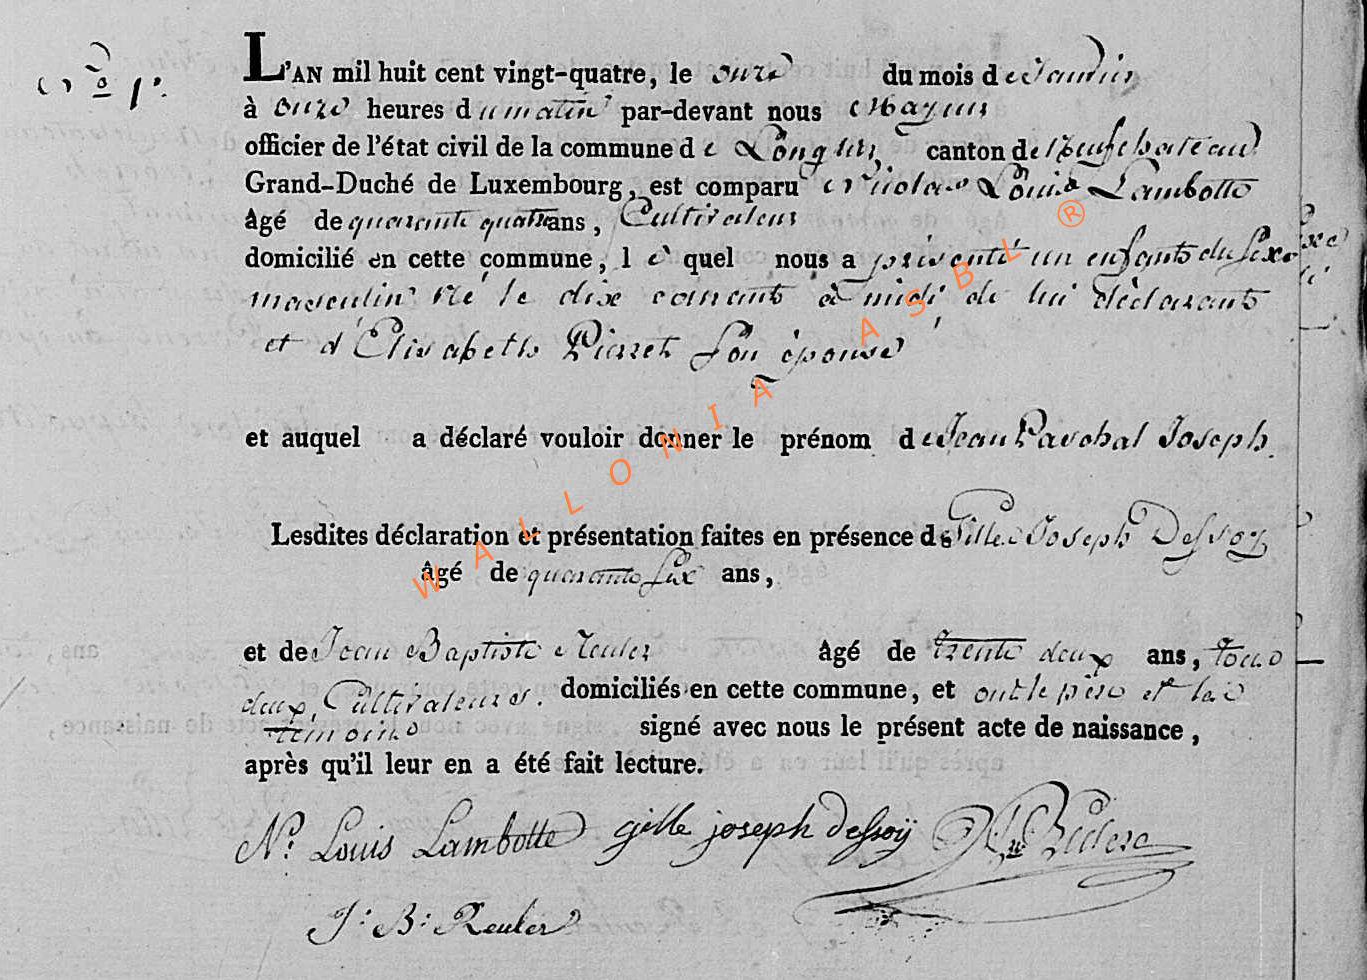 N.º 1.er
L'AN mil huit cent vingt-quatre, le onze du mois de Janvier
à onze heures du matin par-devant nous Mayeur
officier de l'état civil de la commune de Longlier canton de Neufchateau
Grand-Duché de Luxembourg, est comparu Nicolas Louis Lambotte
âgé de quarante quatre ans, Cultivateur
domicilié en cette commune, lequel nous a présenté un enfant du sexe
masculin né le dix courant à midi de lui déclarant
et d'Elisabeth Pierret son épouse
et auquel a déclaré vouloir donner le prénom de Jean Paschal Joseph.
Lesdites déclaration et présentation faites en présence de Gille Joseph Dessoy
âgé de quarante six ans,
et de Jean Baptiste Reuler âgé de trente deux ans, tous
deux Cultivateurs. domiciliés en cette commune, et ont le père et les
témoins signé avec nous le présent acte de naissance,
après qu'il leur en a été fait lecture.
N.s Louis Lambotte gille joseph dessoÿ
J: B: Reuler
WALLONIA ASBL ®